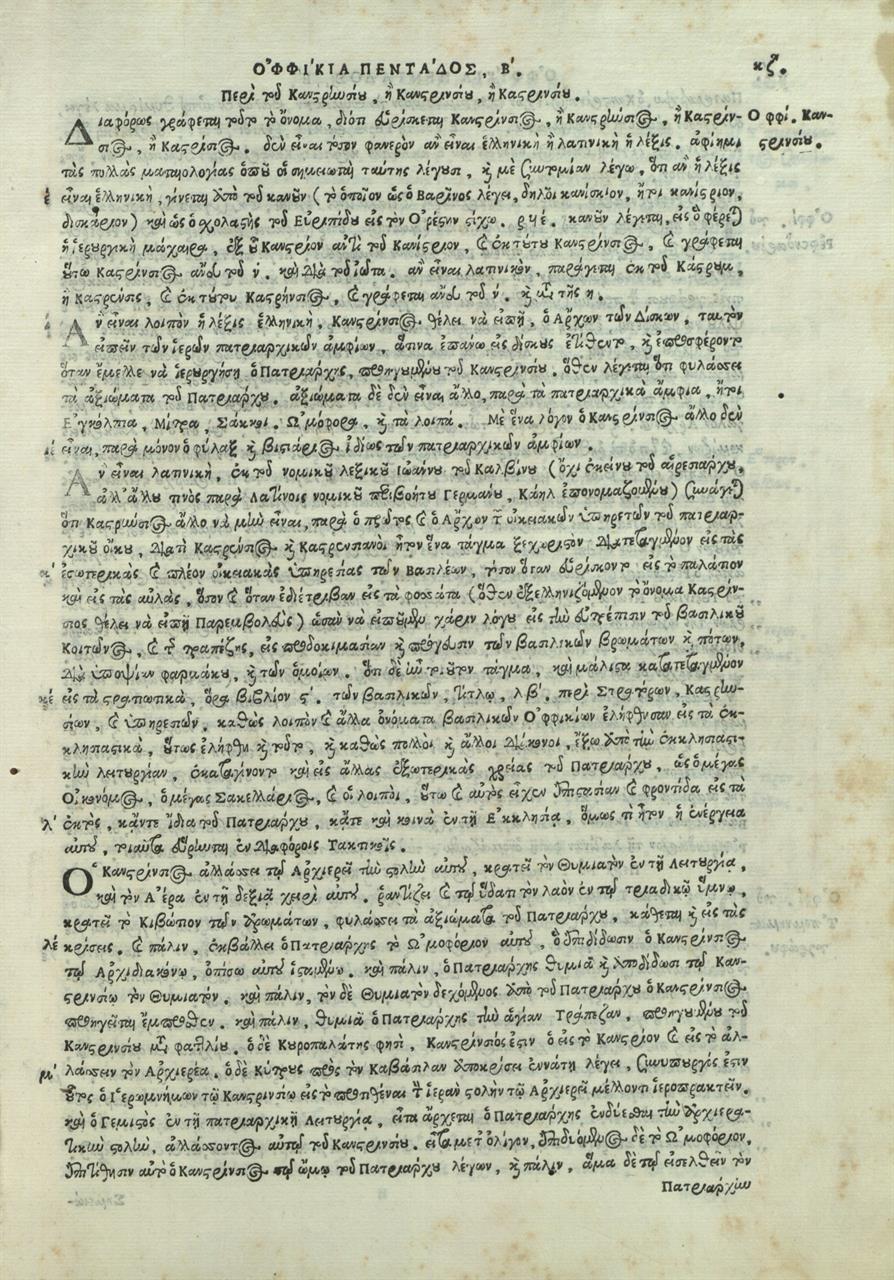 ΟΦΦΙΚΙΑ ΠΕΝΤΑΔΟΣ, Β΄. κζ.
Περὶ τοῦ Κανστρινσίου, ἢ Κανστρινσίου, ἢ Καστρινσίου.
Διαφόρως γράφεται τοῦτο τὸ ὄνομα, διότι εὑρίσκεται Κανστρίνσιος, ἢ Κανστρήνσιος, ἢ Καστρίν- Ο φφί. Καν-
σιος, ἢ Καστρίσιος. δὲν εἶναι ἦτον φανερὸν ἂν εἶναι ἑλληνικὴ ἢ λατινικὴ ἡ λέξις. ἀφίημι στρινσίου.
τὰς πολλὰς ματαιολογίας ὁποῦ οἱ σημειωταὶ ταύτης λέγουσι, καὶ μὲ συντομίαν λέγω, ὅτι ἂν ἡ λέξις
έ εἶναι ἑλληνικὴ, γίνεται ἀπὸ τοῦ κανοῦν (τὸ ὁποῖον ὡς ὁ Βαρῖνος λέγει, δηλοῖ κανίσκιον, ἤτοι κανίστριον,
δισκάριον) καὶ ὡς ὁ σχολαστὴς τοῦ Εὐριπίδου εἰς τὸν Ὀρέστην στίχῳ. ρ ψ έ. κανοῦν λέγεται, εἰς ὃ φέρεται
ἡ ἱερουργικὴ μάχαιρα, ἐξ οὗ Κανστρίον ἀντὶ τοῦ Κανίστριον, καὶ ἐκ τούτου Κανστρίνσιος, καὶ γράφεται
οὕτω Καστρίνσιος ἄνευ τοῦ ν. καὶ διὰ τοῦ ἰῶτα. ἂν εἶναι λατινικὸν, παράγεται ἐκ τοῦ Κάστρουμ,
ἢ Καστρένσις, καὶ ἐκ τούτου Καστρήνσιος, καὶ γράφεται ἄνευ τοῦ ν. καὶ μετὰ τῆς η.
Ἂν εἶναι λοιπὸν ἡ λέξις ἑλληνικὴ, Κανστρίνσιος θέλει νὰ εἰπῇ, ὁ Ἄρχων τῶν Δίσκων, ταυτὸν
εἰπεῖν τῶν ἱερῶν πατριαρχικῶν ἀμφίων, ἅτινα ἐπάνω εἰς δίσκους ἐτίθεντο, καὶ ἐπροσφέροντο
ὅταν ἔμελλε νὰ ἱερουργήσῃ ὁ Πατριάρχης, προηγουμένου τοῦ Κανστρινσίου. ὅθεν λέγεται ὅτι φυλάσσει
τὰ ἀξιώματα τοῦ Πατριάρχου. ἀξιώματα δὲ δὲν εἶναι ἄλλο, παρὰ τὰ πατριαρχικὰ ἄμφια, ἤτοι
Ἐγκόλπια, Μίτρα, Σάκκοι. Ὠμόφορα, καὶ τὰ λοιπά. Μὲ ἕνα λόγον ὁ Κανστρίνσιος ἄλλο δὲν
ιέ εἶναι, παρὰ μόνον ὁ φύλαξ καὶ βιστιάριος ἰδίως τῶν πατριαρχικῶν ἀμφίων.
Ἂν εἶναι λατινικὴ, ἐκ τοῦ νομικοῦ λεξικοῦ Ἰωάννου τοῦ Καλβίνου (ὄχι ἐκείνου τοῦ αἱρεσιάρχου,
ἀλλ' ἄλλου τινὸς παρὰ Λατίνοις νομικοῦ περιβοήτου Γερμανοῦ, Κάηλ ἐπονομαζομένου) συνάγεται
ὅτι Καστρήνσιος ἄλλο νὰ μὴν εἶναι, παρὰ ὁ πρῶτος καὶ ὁ Ἄρχων τῶν οἰκειακῶν ὑπηρετῶν τοῦ πατριαρ-
χικοῦ οἴκου, διατὶ Καστρένσιος καὶ Καστρενσιανοὶ ἦτον ἕνα τάγμα ξεχωριστὸν διατεταγμένον εἰς τὰς
ἐσωτερικὰς καὶ πλέον οἰκειακὰς ὑπηρεσίας τῶν Βασιλέων, τόσον ὅταν εὑρίσκοντο εἰς τὸ παλάτιον
καὶ εἰς τὰς αὐλὰς, ὅσον καὶ ὅταν ἐδιέτριβαν εἰς τὰ φοσσάτα (ὅθεν ἐξελληνιζόμενον τὸ ὄνομα Καστρίν-
σιος θέλει νὰ εἰπῇ Παρεμβολεὺς) ὡσὰν νὰ εἰποῦμεν χάριν λόγου εἰς τὴν εὐτρέπισιν τοῦ βασιλικοῦ
Κοιτῶνος, καὶ τῆς τραπέζης, εἰς προδοκιμασίαν καὶ πρόγευσιν τῶν βασιλικῶν βρωμάτων καὶ πότων,
διὰ ὑποψίαν φαρμάκου, καὶ τῶν ὁμοίων. ὅτι δὲ ἦν τοιοῦτον τάγμα, καὶ μάλιστα κατατεταγμένον
κέ εἰς τὰ στρατιωτικὰ, ὅρα βιβλίον ϛ΄. τῶν βασιλικῶν, τίτλῳ, λβ΄. περὶ Στρατόρων, Καστρην-
σίων, καὶ ὑπηρεσιῶν. καθὼς λοιπὸν καὶ ἄλλα ὀνόματα βασιλικῶν Ὀφφικίων ἐλήφθησαν εἰς τὰ ἐκ-
κλησιαστικὰ, οὕτως ἐλήφθη καὶ τοῦτο, καὶ καθὼς πολλοὶ καὶ ἄλλοι Διάκονοι, ἔξω ἀπὸ τὴν ἐκκλησιαστι-
κὴν λειτουργίαν, ἐκαταγίνοντο καὶ εἰς ἄλλας ἐξωτερικὰς χρείας τοῦ Πατριάρχου, ὡς ὁ μέγας
Οἰκονόμος, ὁ μέγας Σακελλάριος, καὶ οἱ λοιποὶ, οὕτω καὶ αὐτὸς εἶχεν ἐπιστασίαν καὶ φροντίδα εἰς τὰ
λ΄ ἐκτὸς, κἄντε ἴδια τοῦ Πατριάρχου, κἄτε καὶ κοινὰ ἐν τῇ Ἐκκλησίᾳ, ὅμως τὶ ἦτον ἡ ἐνέργεια
αὐτοῦ, τοιαῦτα εὕρηνται ἐν διαφόροις Τακτικοῖς.
Ὁ Κανστρίνσιος ἀλλάσσει τῷ Ἀρχιερεῖ τὴν στολὴν αὐτοῦ, κρατεῖ τὸν Θυμιατὸν ἐν τῇ Λειτουργίᾳ,
καὶ τὸν Ἀέρα ἐν τῇ δεξιᾷ χειρὶ αὐτοῦ. ῥαντίζει καὶ τῷ ὕδατι τὸν λαὸν ἐν τῷ τριαδικῷ ὕμνῳ,
κρατεῖ τὸ Κιβώτιον τῶν Χρωμάτων, φυλάσσει τὰ ἀξιώματα τοῦ Πατριάρχου, κάθεται καὶ εἰς τὰς
λέ κρίσεις. καὶ πάλιν, ἐκβάλλει ὁ Πατριάρχης τὸ Ὠμοφόριον αὐτοῦ, ὃ ἐπιδίδωσιν ὁ Κανστρίνσιος
τῷ Ἀρχιδιακόνῳ, ὀπίσω αὐτοῦ ἱσταμένῳ. καὶ πάλιν, ὁ Πατριάρχης θυμιᾷ καὶ ἀποδίδωσι τῷ Καν-
στρινσίῳ τὸν Θυμιατόν. καὶ πάλιν, τὸν δὲ Θυμιατὸν δεχόμενος ἀπὸ τοῦ Πατριάρχου ὁ Κανστρίνσιος
προηγεῖται ἔμπροσθεν. καὶ πάλιν, θυμιᾷ ὁ Πατριάρχης τὴν ἁγίαν Τράπεζαν, προηγουμένου τοῦ
Κανστρινσίου μετὰ φατλίου. ὁ δὲ Κυροπαλάτης φησὶ, Κανστρίνσιός ἐστιν ὁ εἰς τὸ Κανστρίον καὶ εἰς τὸ ἀλ-
μ΄ λάσσειν τὸν Ἀρχιερέα. ὁ δὲ Κύτρους πρὸς τὸν Καβάσιλαν ἀποκρίσει ἐννάτῃ λέγει, συνυπουργός ἐστιν
οὗτος ὁ Ἱερομνήμων τῷ Κανστρινσίῳ εἰς τὸ προτιθέναι τὴν ἱερὰν στολὴν τῷ Ἀρχιερεῖ μέλλοντι ἱεροπρακτεῖν.
καὶ ὁ Γεμιστὸς ἐν τῇ πατριαρχικῇ Λειτουργίᾳ, εἶτα ἄρχεται ὁ Πατριάρχης ἐνδύεσθαι τὴν ἀρχιερα-
τικὴν στολὴν, ἀλλάσσοντος αὐτῷ τοῦ Κανστρινσίου. εἶτα μετ' ὀλίγον, ἐπιδυόμενος δὲ τὸ Ὠμοφόριον,
ἐπιτίθησιν αὐτὸ ὁ Κανστρίνσιος τῷ ὤμῳ τοῦ Πατριάρχου λέγων, καὶ πάλιν, ἅμα δὲ τῷ εἰσελθεῖν τὸν
Πατριάρχην